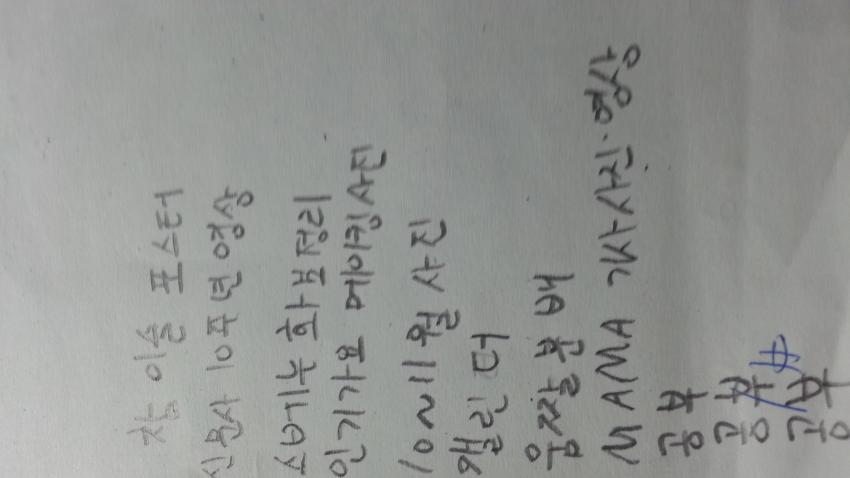 참이슬 포스터
신문사 10주년 영상
소비기누 화보정리
인기가요 메이킹사진
10~11월 사진
캘린더
움짤분배
MAMA 기사사진·영상
공부
공부
공부